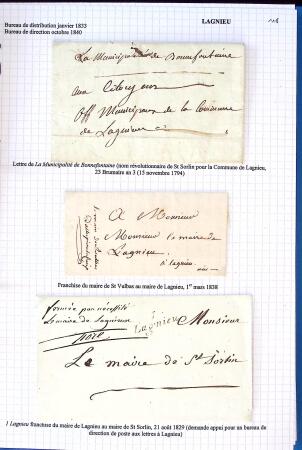 Bureau de distribution janvier 1833
Bureau de direction octobre 1840
LAGNIEU
La Municipalité de Bonnefontaine
aux Citoyens
Off Municipaux de la Commune
de Lagnieu
Lettre de La Municipalité de Bonnefontaine (nom révolutionnaire de St Sorlin pour la Commune de Lagnieu,
23 Brumaire an 3 (15 novembre 1794)
A Monsieur
Monsieur le maire de
Lagnieu
à Lagnieu
Franchise du maire de St Vulbas au maire de Lagnieu, 1er mars 1838
fermée par nécessité
Le maire de Lagnieu
1 Lagnieu
Monsieur
Le maire de St Sorlin
1 Lagnieu franchise du maire de Lagnieu au maire de St Sorlin, 21 août 1829 (demande appui pour un bureau de
direction de poste aux lettres à Lagnieu)